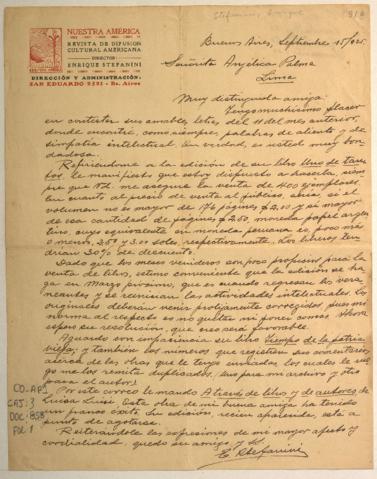 NUESTRA AMERICA
REVISTA DE DIFUSION
CULTURAL AMERICANA
DIRECTOR
ENRIQUE STEFANINI
DIRECCIÓN Y ADMINISTRACIÓN:
SAN EDUARDO 2521 - Bs. Aires
Buenos Aires, Septiembre 15/925.
Señorita Angélica Palma
Lima
Muy distinguida amiga:
Tengo muchísimo placer
en contestar sus amables letras del 11 del mes anterior,
donde encontré, como siempre, palabras de aliento y de
simpatía intelectual. En verdad, es usted muy bon-
dadosa.
Refiriéndome a la edición de su libro Uno de tan-
tos, le manifiesto que estoy dispuesto a hacerla, siem-
pre que Vd. me asegure la venta de 400 ejemplares.
En cuanto al precio de venta al público sería si el
volumen no es mayor de 176 páginas $ 2.00 y si mayor
de esa cantidad de páginas $ 2.50, moneda papel argen-
tino, cuyo equivalente en moneda peruana es, poco más
o menos, 2.50 y 3.00 soles, respectivamente. Los libreros ten-
drían 30% de descuento.
Dado que los meses venideros son poco propicios para la
venta de libros, estimo conveniente que la edición se ha-
ga en Marzo próximo, que es cuando regresan los vera-
neantes y se reinician las actividades intelectuales. Los
originales deberán venir prolijamente corregidos, pues mi
norma al respecto es no quitar ni poner comas. Ahora
espero su resolución, que creo será favorable.
Aguardo con impaciencia su libro Tiempos de la patria
vieja y también los números que registren sus
acerca de las que le envío
me los remita duplicados, (uno para mi archivo y otro
para el autor).
Por este correo le mando A través de libros y de autores de
Luisa Luisi. Esta obra de mi buena amiga ha tenido
un franco éxito. Su edición, recién aparecida, está a
punto de agotarse.
Reiterándole las expresiones de mi mayor afecto y
cordialidad, quedo su amigo y SS.
E. Stefanini
CO. APJ
CAJ: 3
DOC: 858
FOL 1